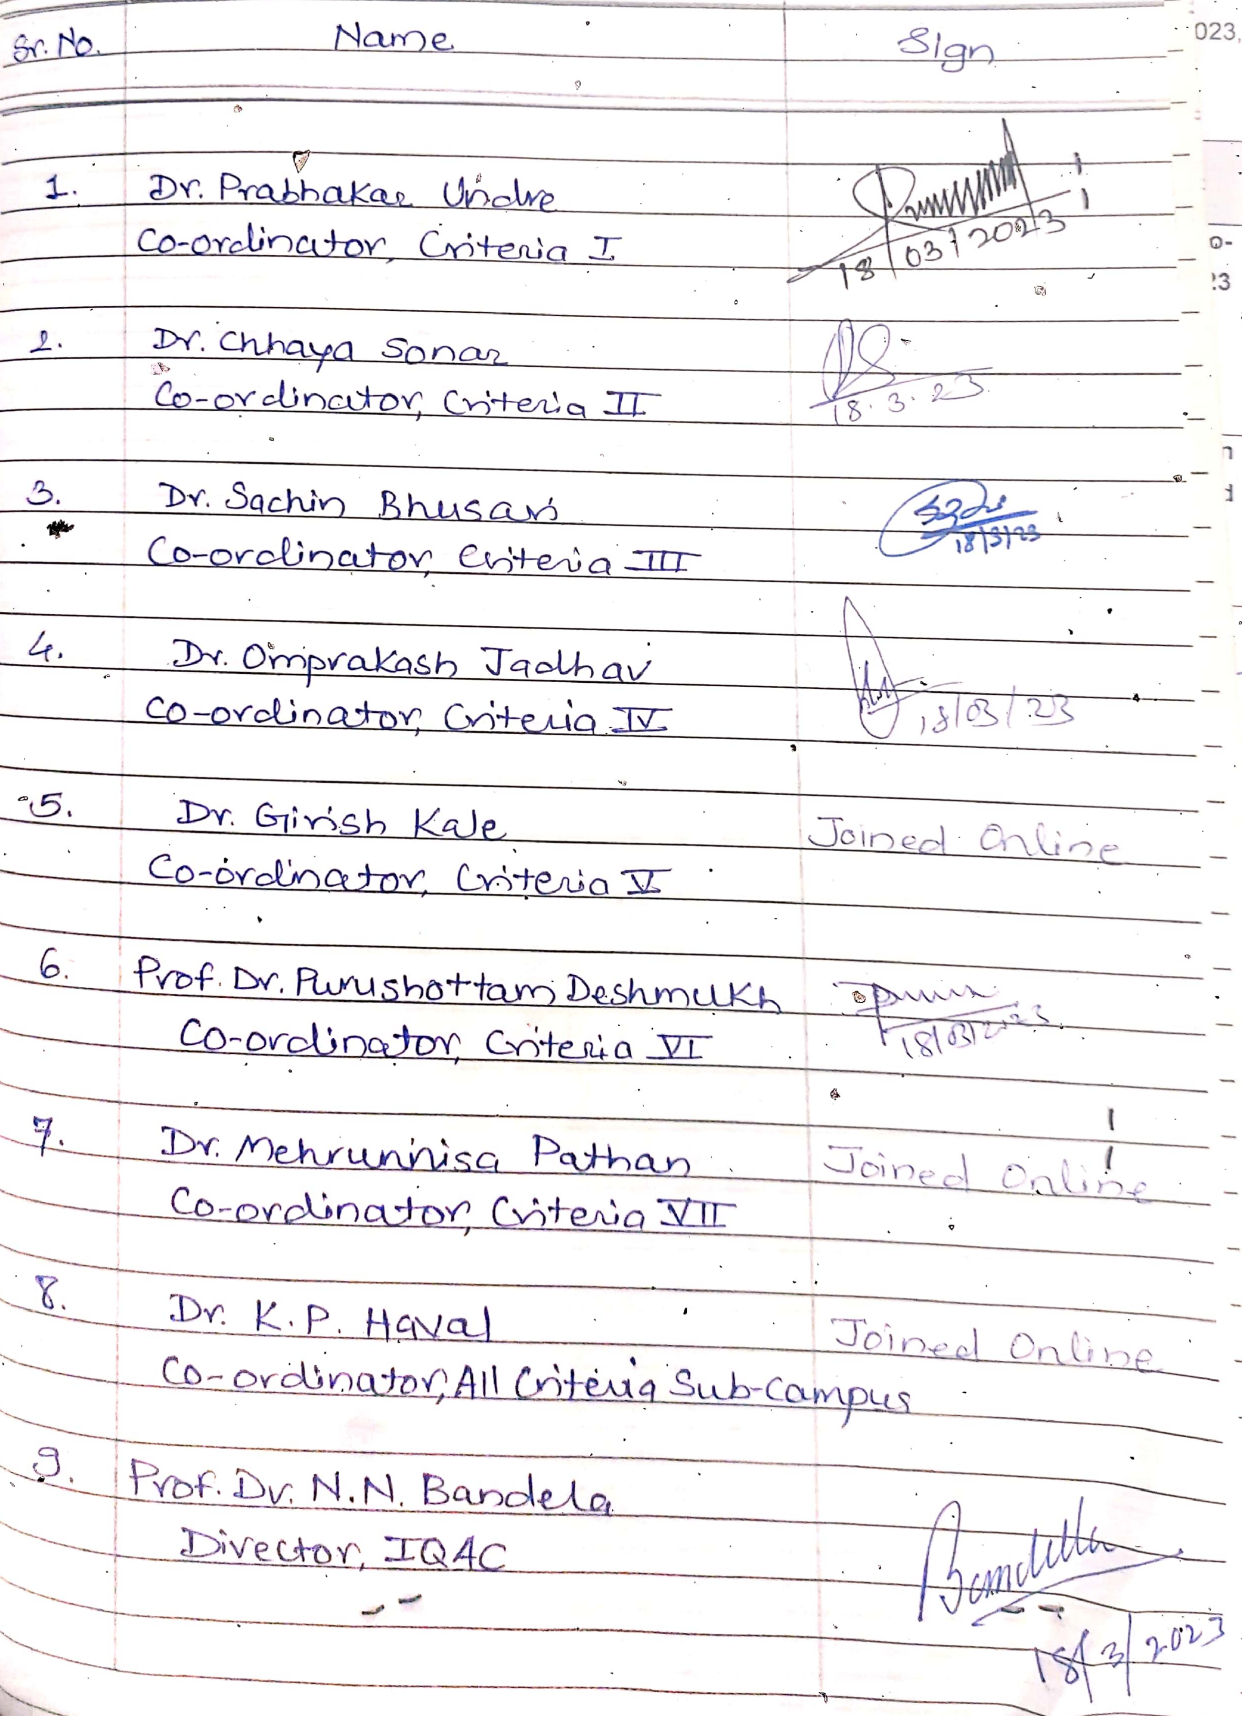 Sr. No. Name Sign
023,
1. Dr. Prabhakar Undre
Co-ordinator, Criteria I
18/03/2023
2. Dr. Chhaya Sonar
Co-ordinator, Criteria II
18.3.23
3. Dr. Sachin Bhusari
Co-ordinator, Criteria III
18/3/23
4. Dr. Omprakash Jadhav
Co-ordinator, Criteria IV
18/03/23
5. Dr. Girish Kale Joined Online
Co-ordinator, Criteria V
6. Prof. Dr. Purushottam Deshmukh
Co-ordinator, Criteria VI
18/03/2023
7. Dr. Mehrunnisa Pathan Joined Online
Co-ordinator, Criteria VII
8. Dr. K.P. Haval Joined Online
Co-ordinator, All Criteria Sub-campus
9. Prof. Dr. N.N. Bandela
Director, IQAC
Bandella
18/3/2023